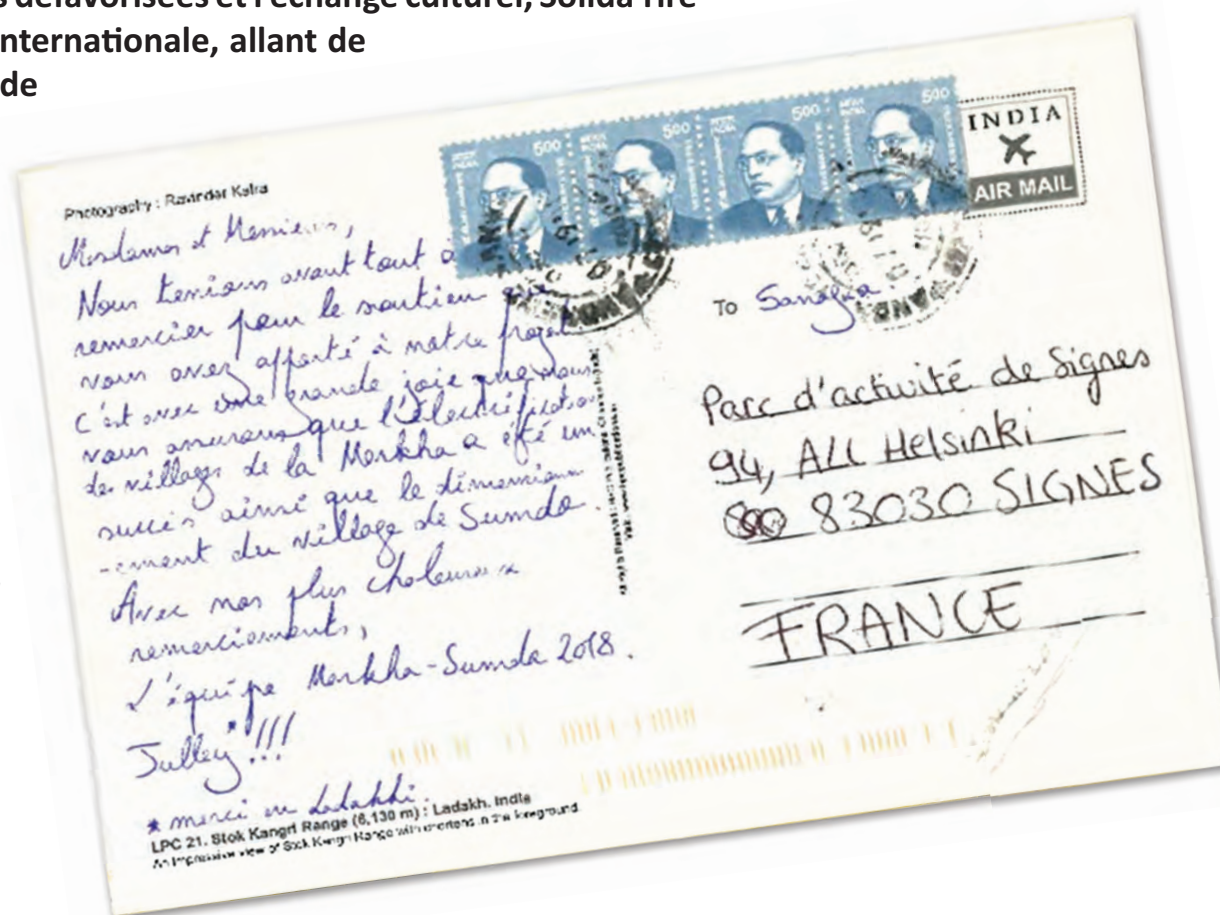 défavorisées et l'échange culturel, Solida'rire
internationale, allant de
de
Photography : Ravinder Kalra
Mesdames et Messieurs,
Nous tenions avant tout à
remercier pour le soutien que
vous avez apporté à notre projet
C'est avec une grande joie que nous
vous assurons que l'électrification
des villages de la Markha a été un
succès ainsi que le dimension
-ement du village de Sumda.
Avec nos plus chaleureux
remerciements,
L'équipe Markha-Sumda 2018.
Julley*!!!
* merci en Ladakhi.
LPC 21. Stok Kangri Range (6,130 m) : Ladakh. India
An impressive view of Stok Kangri Range with chortens in the foreground.
INDIA 500
INDIA 500
INDIA 500
INDIA 500
INDIA
AIR MAIL
To
Parc d'activité de Signes
94, ALL Helsinki
83030 SIGNES
FRANCE